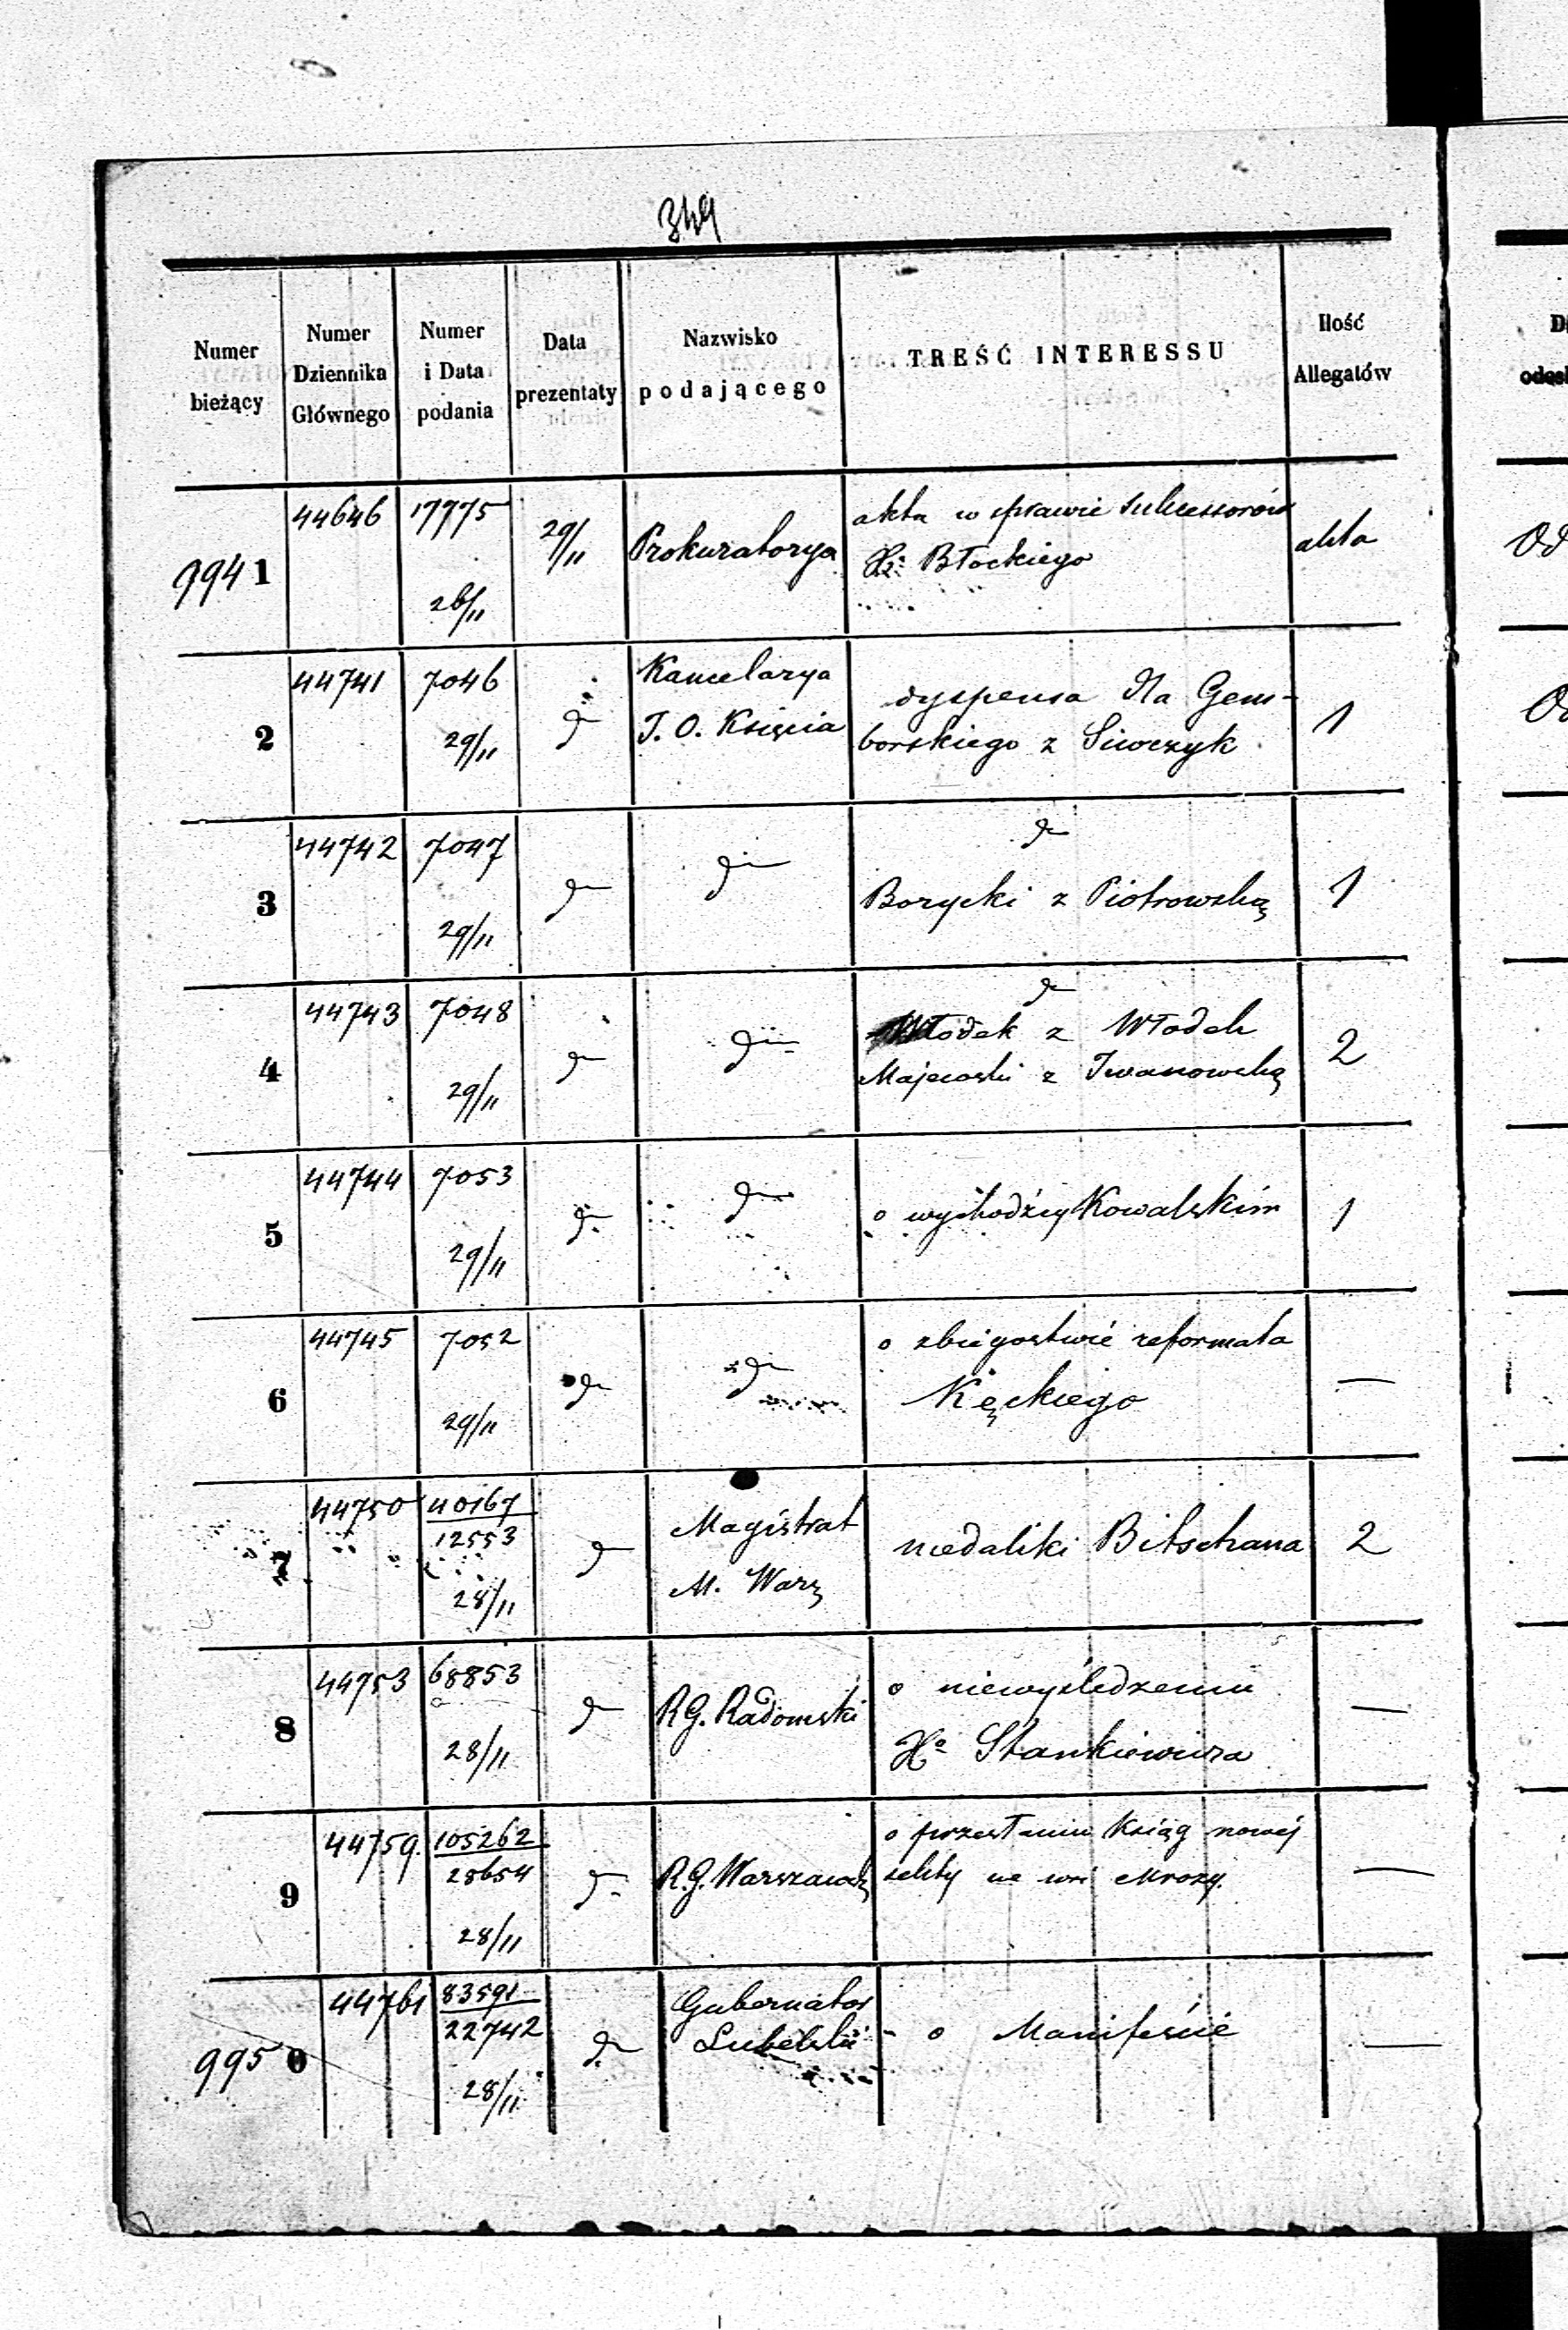 349
Numer bieżący
Numer Dziennika Głównego
Numer i Data podania
Data prezentaty
Nazwisko podającego
TREŚĆ INTERESSU
Ilość Allegatów
9941
44646
17775
26/11
29/11
Prokuratorya
akta w sprawie sukcessorów
Xa Błockiego
akta
2
44741
7046
29/11
d
Kancelarya
J. O. Księcia
dyspensa dla Gem-
borskiego z Siwczyk
1
3
44742
7047
29/11
d
d
d
Borycki z Piotrowską
1
4
44743
7048
29/11
d
d
d
Włodek z Włodek
Majewski z Iwanowską
2
5
44744
7053
29/11
d
d
o wychodźcy Kowalskim
1
6
44745
7052
29/11
d
d
o zbiegostwie reformata
Kęckiego
—
7
44750
40167
12553
28/11
d
Magistrat
M. Warz
medaliki Bitschana
2
8
44753
68853
28/11
d
RG. Radomski
o niewyśledzeniu
Xa Stankiewicza
—
9
44759
105262
28654
28/11
d
R.G. Warszawski
o przesłaniu ksiąg nowéj
sekty we wsi Mrozy.
—
9950
44761
83591
22742
28/11
d
Gubernator
Lubelski
o Manifeście
—